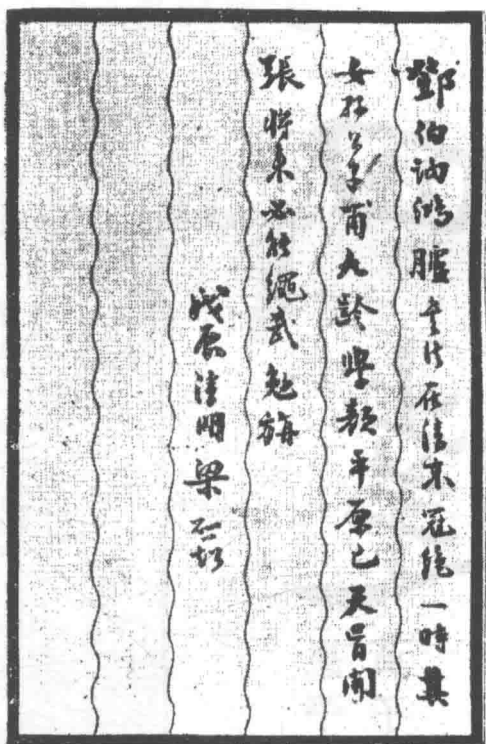 鄧伯訥鴻臚書法在清末冠絕一時其
女孫公孚甫九齡學顏平原已天骨開
張將來必能繩武勉旃
戊辰清明梁